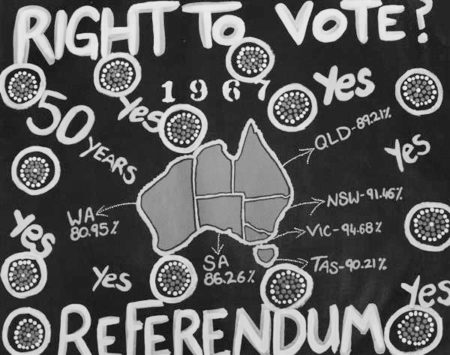 RIGHT TO VOTE?
1967
Yes
Yes
50
YEARS
Yes
QLD-89.21%
WA
80.95%
NSW-91.46%
VIC-94.68%
Yes
SA
86.26%
TAS-90.21%
Yes
Yes
REFERENDUM